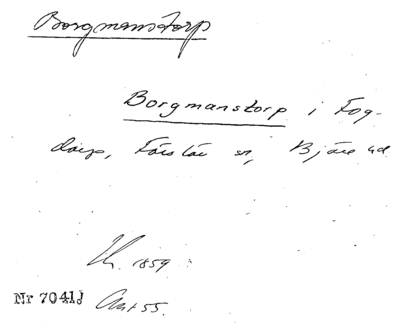 Borgmanstorp
Borgmanstorp i Fog-
dorp, Förslöv sn, Bjäre hd
1859
Nr 7041J
55.